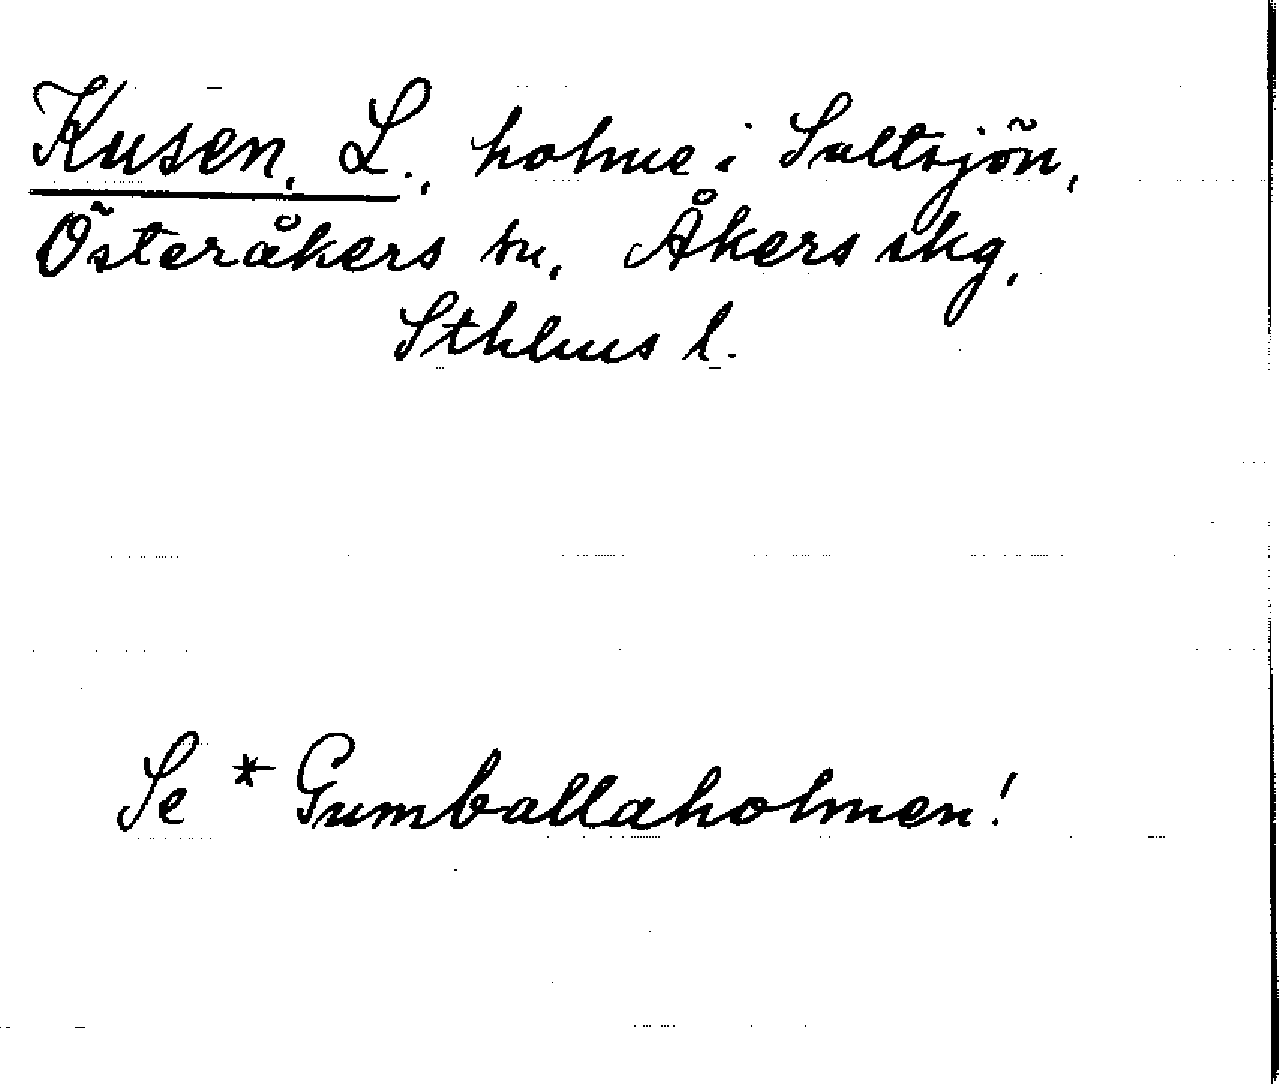 Kusen, L., holme i Saltsjön,
Österåkers sn, Åkers skg,
Sthlms l.
Se * Gumballaholmen!